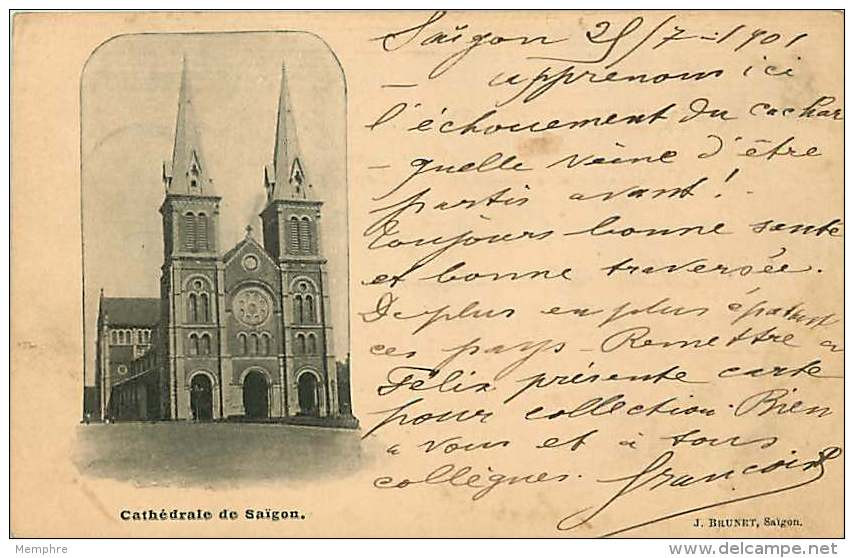 Saïgon 25/7-1901
— apprenons ici
l'échouement du Cachar
- quelle veine d'être
partis avant!
Toujours bonne santé
et bonne traversée.
De plus en plus épatant
ces pays - Remettre à
Félix présente carte
pour collection. Bien
à vous et à tous
collègues. François
Cathédrale de Saïgon.
J. BRUNET, Saïgon.
Memphre
delcampe.net